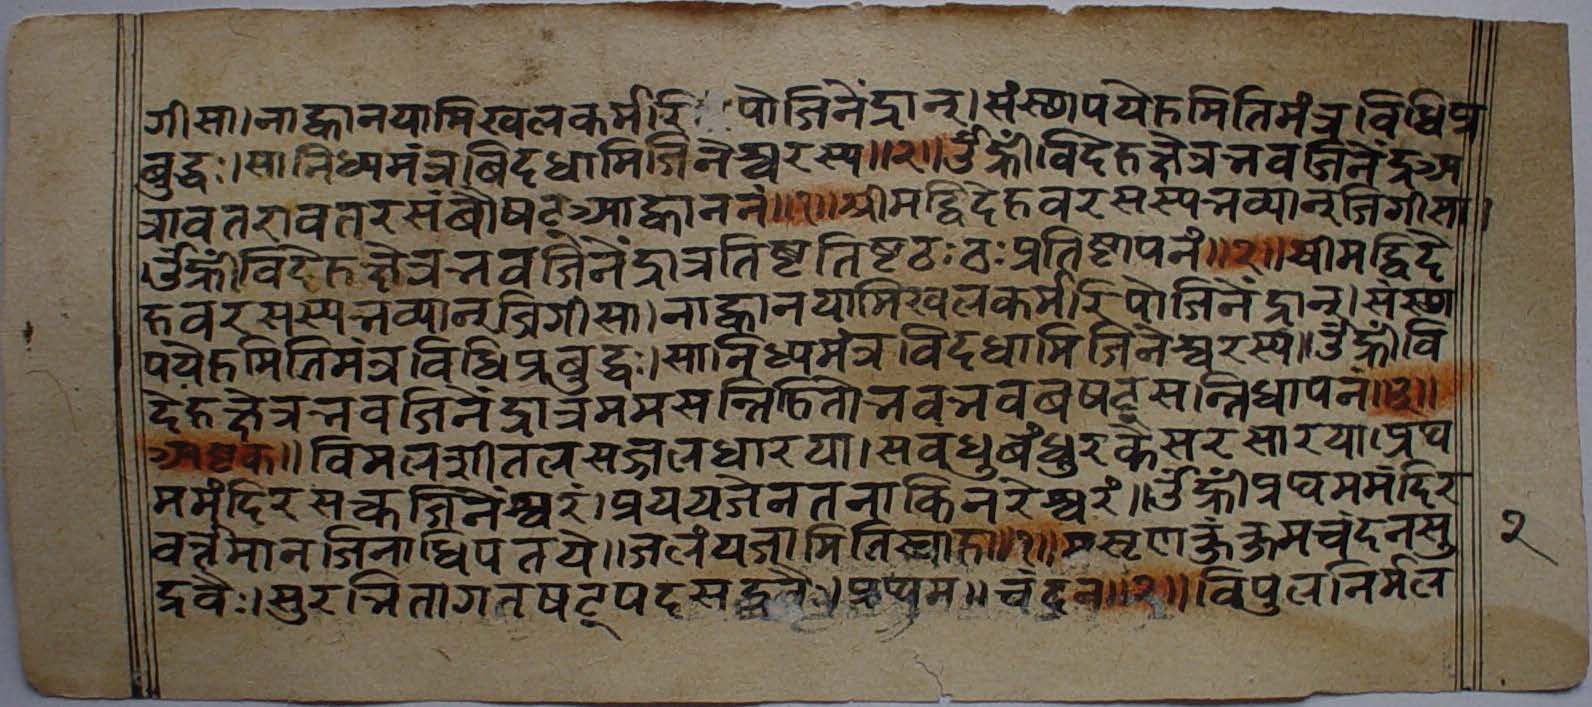 गीसा।नाह्वानयामिखलकर्मरि पौजिनेंद्रान्।संस्थापयेहमितिमंत्रविधिप्र
बुद्धः।सानिध्यमंत्रबिदधामिजिनेश्वरस्य॥२॥ॐह्रीविदेहक्षेत्रनवजिनेंद्रअ
त्रावतरावतरसंबौषट्आह्वाननं॥१॥श्रीमद्विदेहवरसस्यनव्यान्जिगीसा।
ॐह्रींविदेहक्षेत्रनवजिनेंद्रात्रतिष्टतिष्टठःठःप्रतिष्टापनं॥२॥श्रीमद्विदे
हवरसस्यनव्यान्जिगीसा।नाह्वानयामिखलकर्मरिपौजिनेंद्रान्।संस्था
पयेहमितिमंत्रविधिप्रबुद्धः।सानिध्यमंत्रविदधामिजिनेश्वरस्य॥ॐह्रींवि
देहक्षेत्रनवजिनेंद्रात्रममसन्निहितोनवनवबषट्सन्निधापनं॥३॥
अष्टक॥विमलशीतलसज्जलधारया।सवधुबंधुरकेसरसारया।प्रथ
ममंदिरसकजिनेश्वरं।प्रययजेनतनाकिनरेश्वरं॥ॐह्रींप्रथममंदिर
वर्त्तमानजिनाधिपतये॥जलंयजामितिस्वाहा॥१॥मसृणकुंकुमचंदनसु
द्रवैः।सुरभितागतषट्पदसद्रवैः।प्रथम॥चंदन॥२॥विपुलनिर्मल
२